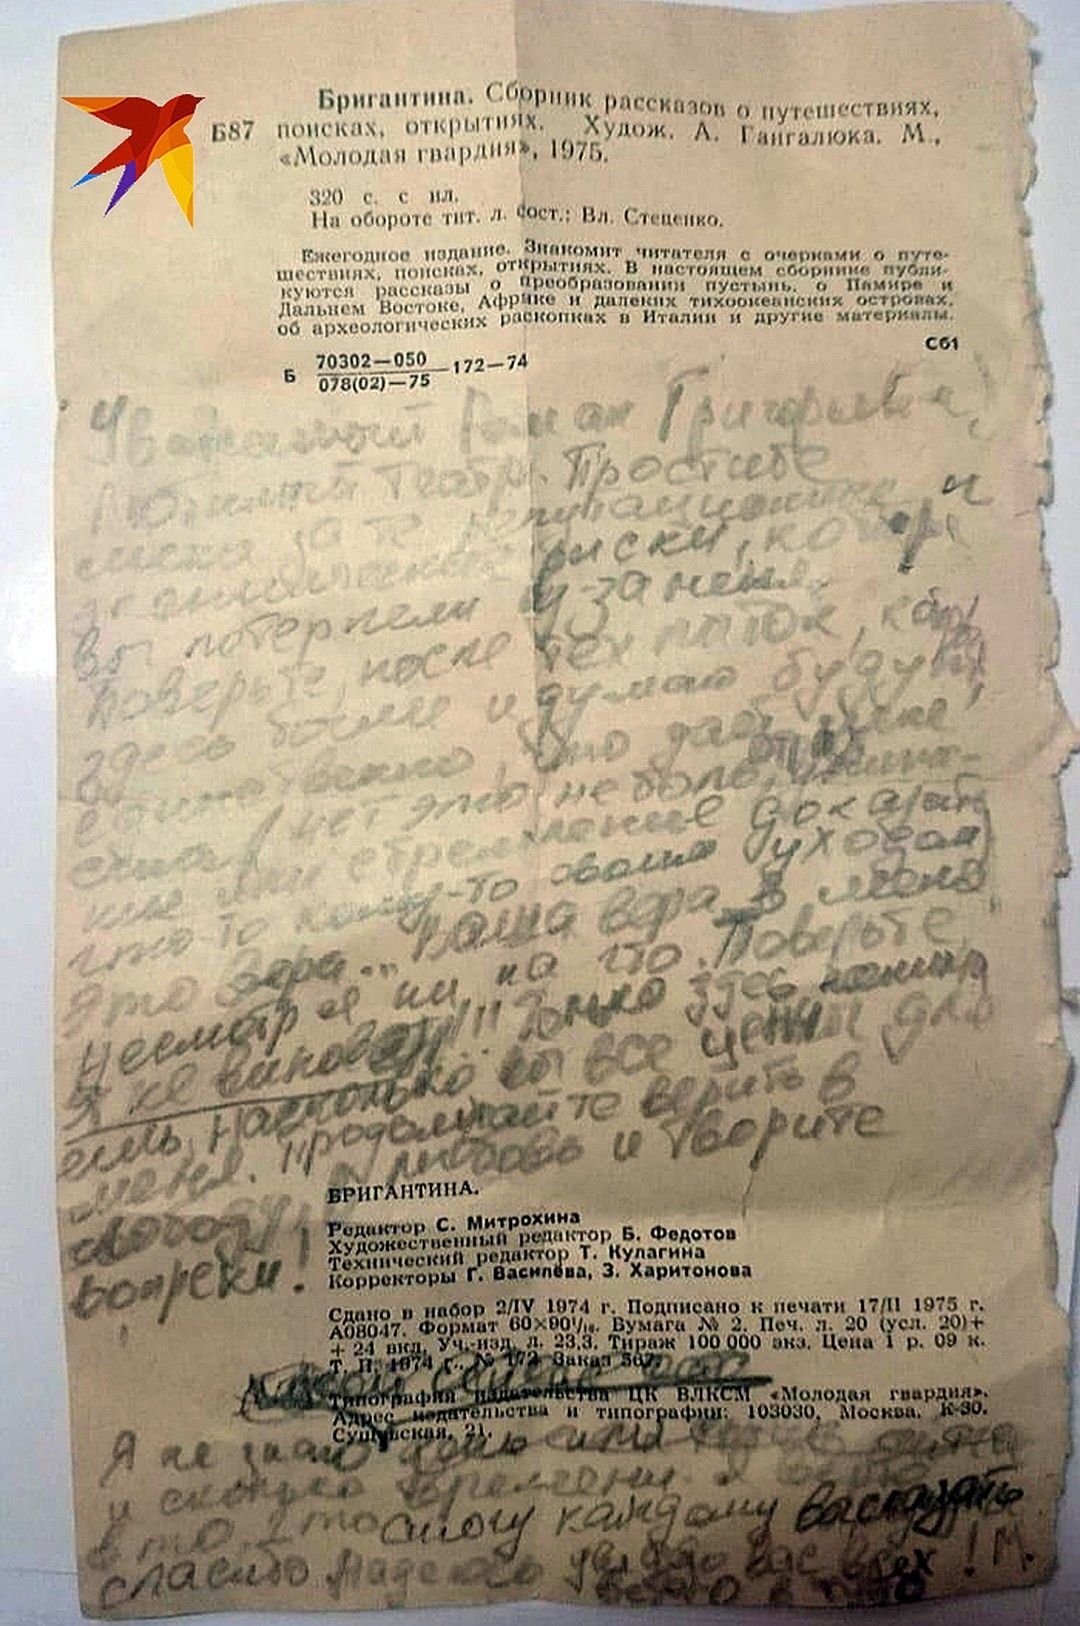 Бригантина. Сборник рассказов о путешествиях,
Б87 поисках, открытиях. Худож. А. Гангалюка. М.,
«Молодая гвардия», 1975.
320 с. с ил.
На обороте тит. л. сост.: Вл. Стеценко.
Ежегодное издание. Знакомит читателя с очерками о путе-
шествиях, поисках, открытиях. В настоящем сборнике публи-
куются рассказы о преобразовании пустынь, о Памире и
Дальнем Востоке, Африке и далеких тихоокеанских островах,
об археологических раскопках в Италии и другие материалы.
Сб1
Б 70302—050
078(02)—75 172—74
Уважаемый Роман Григорьевич,
Любимый театр. Простите
меня за те репутационные и
риски, котор
вы потерпели из-за меня.
Поверьте, после тех пыток, кот
здесь были и думаю будут
единственно, что даёт мне
силы (нет это не боль,
или стремление доказать
что-то кому-то своим уходом)
это вера... Ваша вера в меня
несмотря ни на что. Поверьте,
я не виноват!!! Только здесь
насколько вы все ценны для
меня. Продолжайте верить в
любовь и творите
свободу,
вопреки!
БРИГАНТИНА.
Редактор С. Митрохина
Художественный редактор Б. Федотов
Технический редактор Т. Кулагина
Корректоры Г. Василёва, З. Харитонова
Сдано в набор 2/IV 1974 г. Подписано к печати 17/II 1975 г.
А08047. Формат 60×90¹/₁₆. Бумага № 2. Печ. л. 20 (усл. 20)+
+ 24 вкл. Уч.-изд. л. 23,3. Тираж 100 000 экз. Цена 1 р. 09 к.
Т. П. 1974 г., № 172. Заказ 567.
Типография издательства ЦК ВЛКСМ «Молодая гвардия».
Адрес издательства и типографии: 103030, Москва, К-30,
Сущевская, 21.
Я не знаю
и сколько времени. Я верю
в то, что смогу каждому высказать
спасибо Надеюсь увижу вас всех! М.